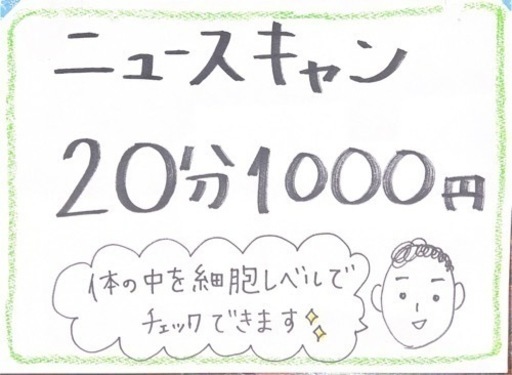 ニュースキャン
20分1000円
体の中を細胞レベルで
チェックできます✨